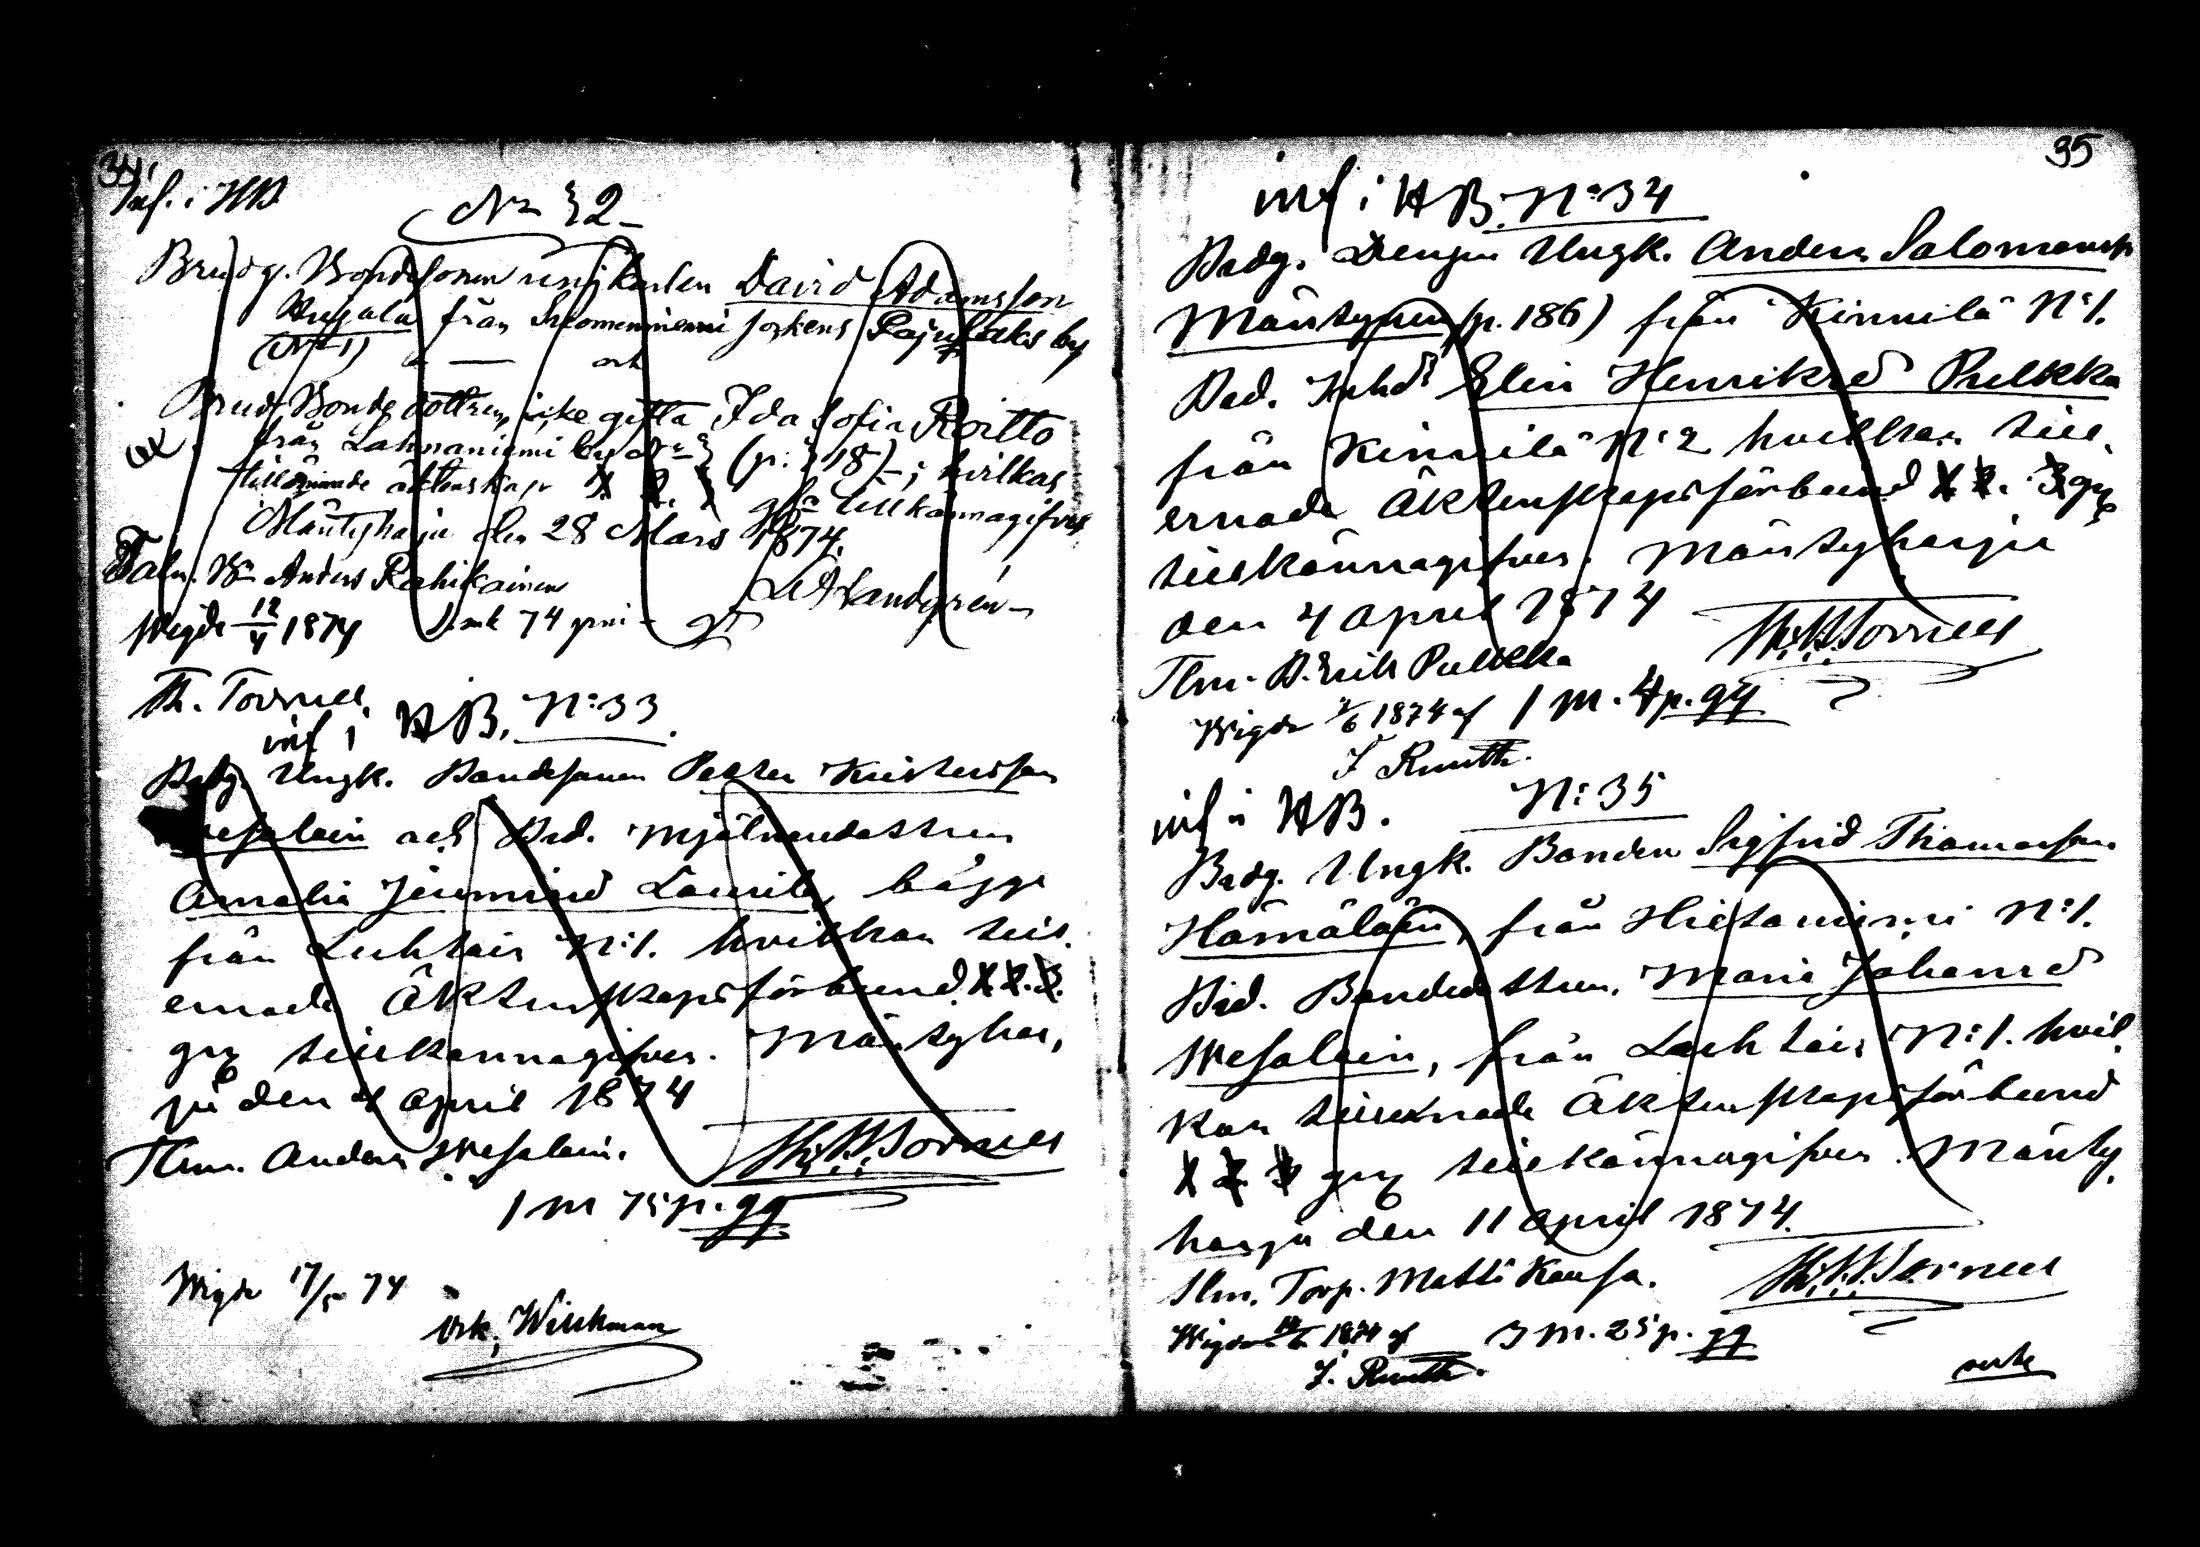 34,
Inf. i HB
No 32
Brudg. Bondesonen ungkarlen David Adamsson
Hugala från Suomenniemi sockens Rajulaks by
(No 1) och
Brud, Bonde dottren, icke gifta Ida Sofia Roitto
från Lahnaniemi by No 3 (p: 318); hvilkas
tillämnade äktenskap 1 2. 3 ga tillkännagifves
Mäntyharju den 28 Mars 1874.
Taln. Bn Anders Rahikainen
LA Sandgrén
Wigde 12/4 1874 1 mk 74 pni
Th. Tornell
inf i HB. No:33
Brdg. Ungk. Bondesonen Petter Kristersson
Wesalain och Brd. Mjölnaredottren
Amalia Jeremiasd Laurila, bägge
från Luhtais No:1. hvilkas till-
ernade Äktenskapsförbund 1. 2. 3.
gg tillkännagifves. Mäntyhar,
ju den 4 April 1874
Tlnm. Anders Wesalain.
Th.H.Tornell
1 m 75 p. gg
Wigde 17/5 74
Osk. Wickman
35
inf i HB. No:34
Brdg. Drengen Ungk. Anders Salomonss
Mäntynen (p. 186) från Kinnilä No:1.
Brd. Inhdr Elin Henriksd Pulkka
från Kinnilä No:2 hvilkas till-
ernade Äktenskapsförbund 1. 2. 3 gg
tillkännagifves. Mäntyharju
den 4 April 1874
Th.H.Tornell
Tlnm. B. Erik Pulkka
Wigde 7/6 1874 af 1 m. 4 p. gg
F Ruuth.
inf i HB. No:35
Brdg. Ungk. Bonden Sigfrid Thomasson
Hämäläin, från Hietaniemi No:1.
Brd. Bondedottren, Maria Johansd
Wesalain, från Luhtais No:1. hvil-
kas tillernade Äktenskapsförbund
1 2 3 gg tillkännagifves. Mänty,
harju den 11 April 1874.
Tlnm. Torp. Matti Kansa.
Th.H.Tornell
Wigde 14/6 1874 af 3 m. 25 p. gg
F. Ruuth.
verte